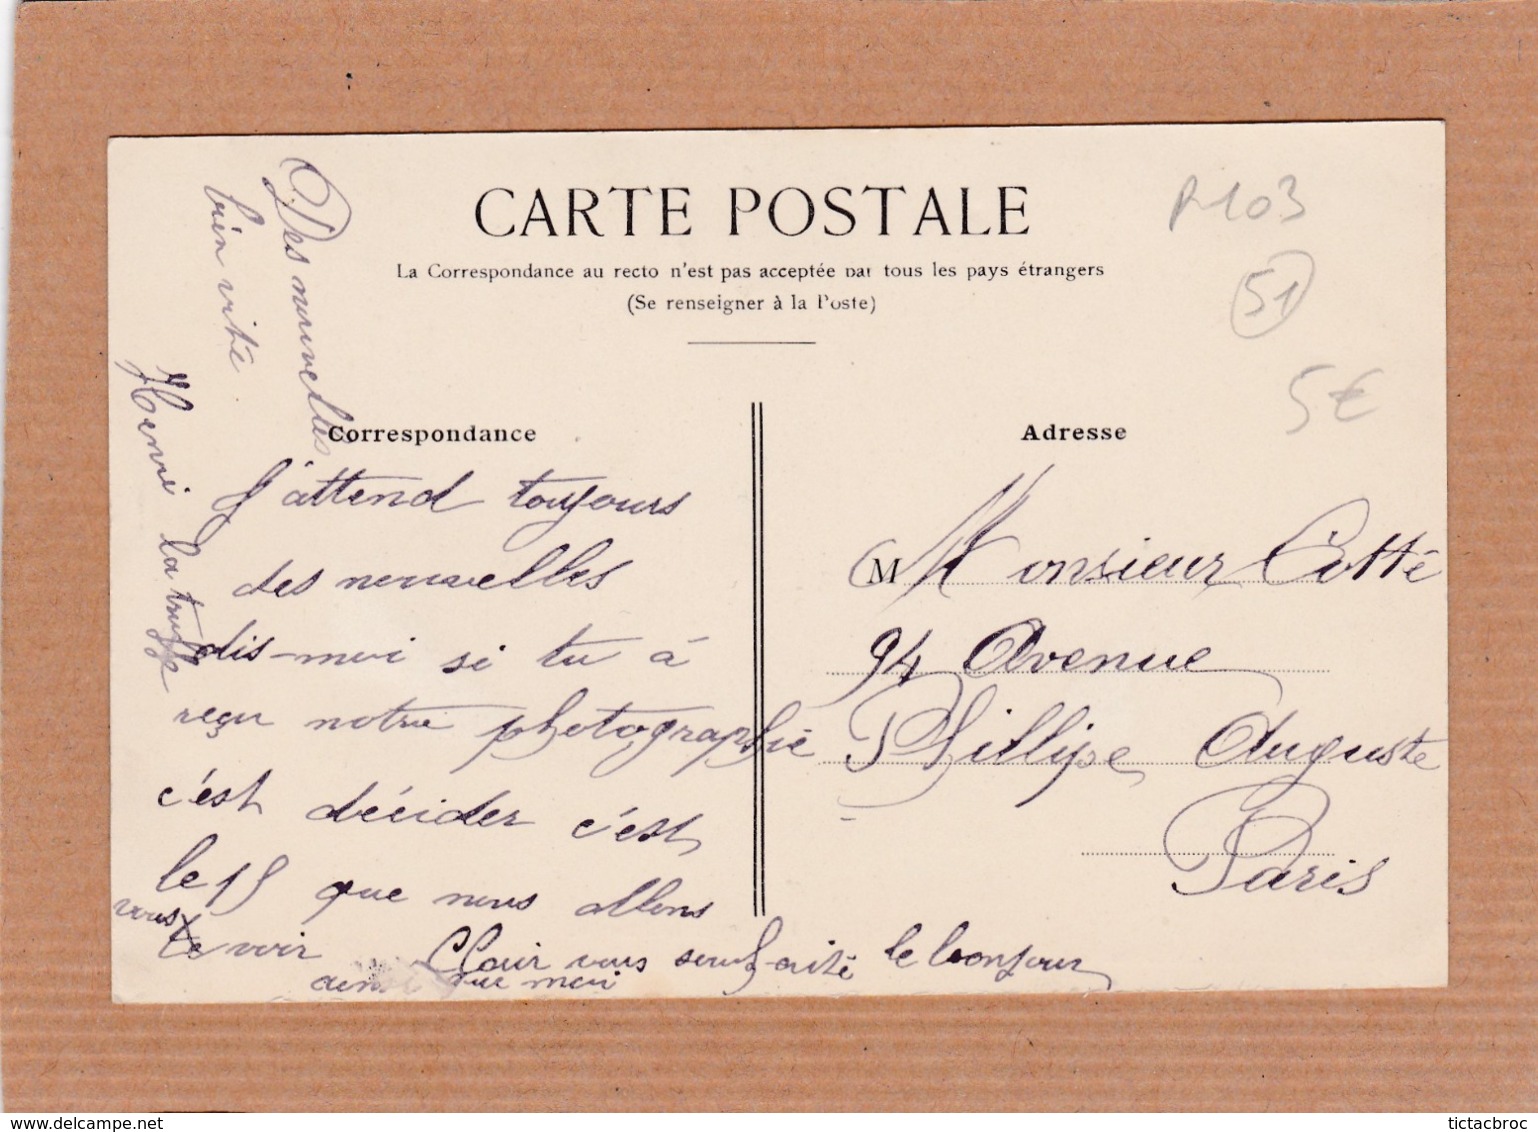 CARTE POSTALE
La Correspondance au recto n'est pas acceptée par tous les pays étrangers
(Se renseigner à la Poste)
R103
51
5€
Correspondance
J'attend toujours
des nouvelles
dis-moi si tu à
reçu notre photographie
c'est décider c'est
le 15 que nous allons
vous te voir
Clair vous souhaité le bonjour
ainsi que moi
Henri la truffe
bien vite
Des nouvelles
Adresse
M Monsieur Cotté
94 Avenue
Phillipe Auguste
Paris
www.delcampe.net
tictacbroc